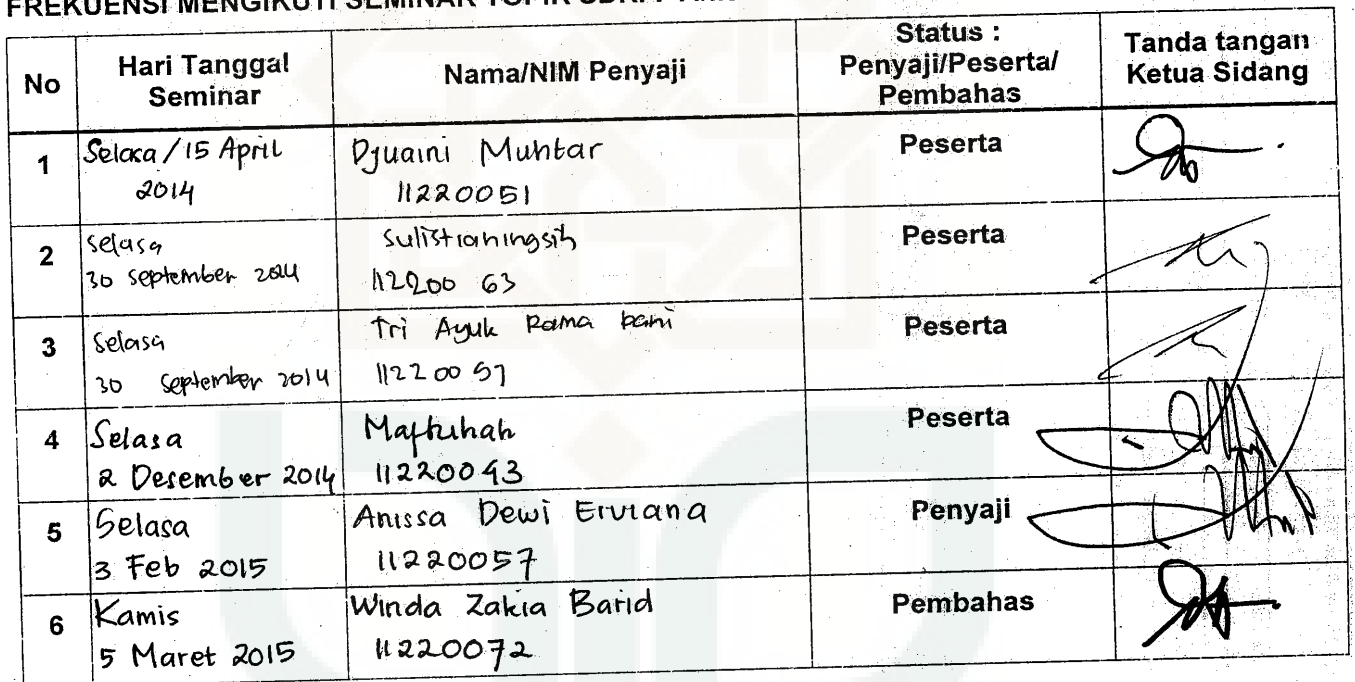 FREKUENSI MENGIKUTI SEMINAR TOPIK
No
Hari Tanggal
Seminar
Nama/NIM Penyaji
Status :
Penyaji/Peserta/
Pembahas
Tanda tangan
Ketua Sidang
1
Selasa / 15 April
2014
Djuaini Muhtar
11220051
Peserta
2
Selasa
30 September 2014
Sulistianingsih
11220063
Peserta
3
Selasa
30 September 2014
Tri Ayuk Rama
11220057
Peserta
4
Selasa
2 Desember 2014
Maftuhah
11220043
Peserta
5
Selasa
3 Feb 2015
Anissa Dewi Erviana
11220057
Penyaji
6
Kamis
5 Maret 2015
Winda Zakia Barid
11220072
Pembahas